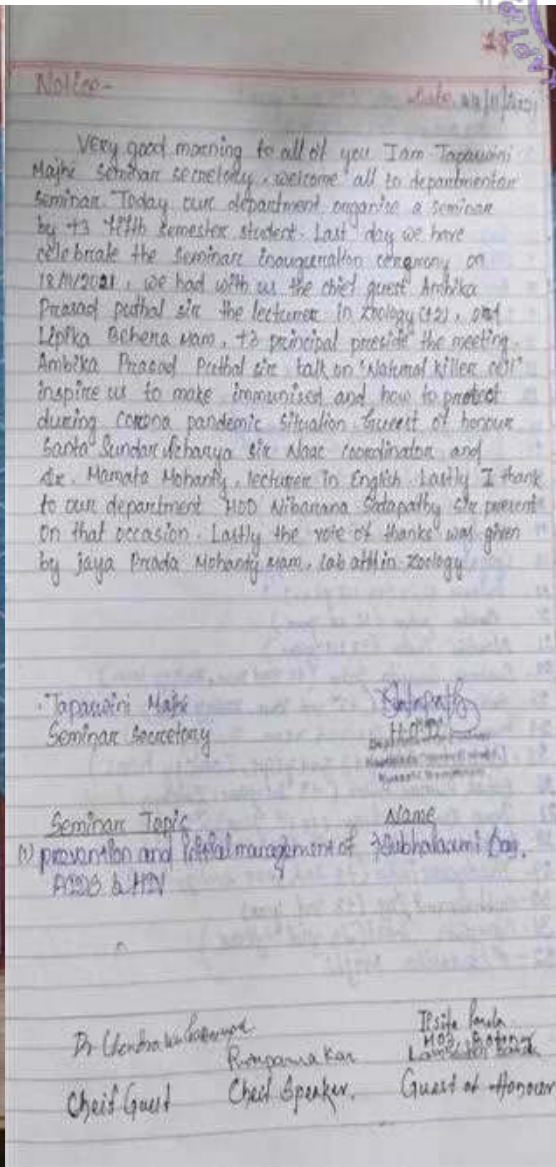 17
Notice-
Date
Very good morning to all of you I am Tapaswini
Majhi seminar secretory, welcome all to departmental
seminar. Today our department organise a seminar
by +3 fifth semester student. Last day we have
celebrate the seminar inauguration ceremony on
18/11/2021, we had with us the chief guest Ambika
Prasad puthal sir the lecturer in Zoology (+2), and
Lipika Behera Mam, +3 principal preside the meeting.
Ambika Prasad Puthal sir talk on "Natural killer cell"
inspire us to make immunised and how to protect
during corona pandemic situation Guest of honour
Santa Sundar Acharya sir Naac coordinator and
dr. Mamata Mohanty, lecturer in English. Lastly I thank
to our department HOD Nibarana Satapathy sir present
on that occasion. Lastly the vote of thanks was given
by jaya Prada Mohanty Mam, lab att in Zoology
Tapaswini Majhi
Seminar Secretory
H.O.D
Seminar Topic Name
(1) prevention and management of Subhalaxmi
AIDS & HIV
Dr
Kar
HOD, Botany
Cheif Guest Cheif Speaker. Guest of Honour